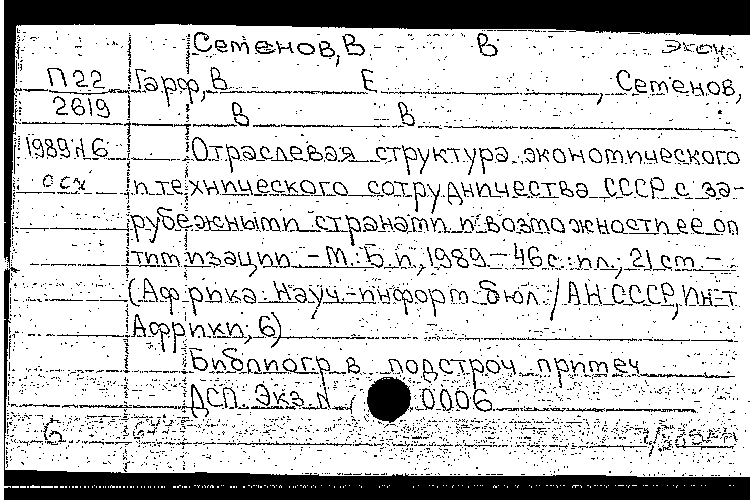 Семенов, В В Экон.
П22 Гарф, В Е , Семенов,
2619 В В
1989 №6 Отраслевая структура экономического
осх и технического сотрудничества СССР с за-
рубежными странами и возможности ее оп
тимизации. - М.: Б.и, 1989 - 46с.: ил.; 21 см. -
(Африка: Науч.-информ. бюл. / АН СССР, Ин-т
Африки; 6)
Библиогр в подстроч примеч
ДСП. Экз. № 0006
6